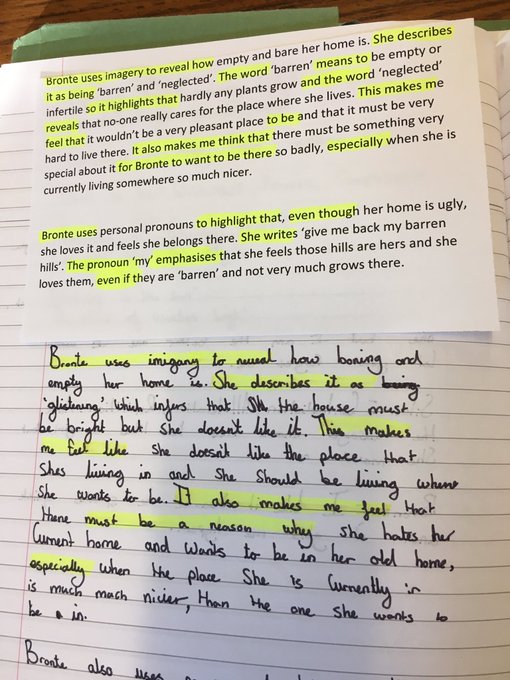 Bronte uses imagery to reveal how empty and bare her home is. She describes
it as being 'barren' and 'neglected'. The word 'barren' means to be empty or
infertile so it highlights that hardly any plants grow and the word 'neglected'
reveals that no-one really cares for the place where she lives. This makes me
feel that it wouldn't be a very pleasant place to be and that it must be very
hard to live there. It also makes me think that there must be something very
special about it for Bronte to want to be there so badly, especially when she is
currently living somewhere so much nicer.
Bronte uses personal pronouns to highlight that, even though her home is ugly,
she loves it and feels she belongs there. She writes 'give me back my barren
hills'. The pronoun 'my' emphasises that she feels those hills are hers and she
loves them, even if they are 'barren' and not very much grows there.
Bronte uses imigary to reveal how boring and
empty her home is. She describes it as being
'glistening' which infers that the house must
be bright but she doesn't like it. This makes
me feel like she doesn't like the place that
shes living in and she should be living where
she wants to be. It also makes me feel that
there must be a reason why she hates her
current home and wants to be in her old home,
especially when the place she is currently in
is much mach nicier, than the one she wants to
be in.
Bronte also uses